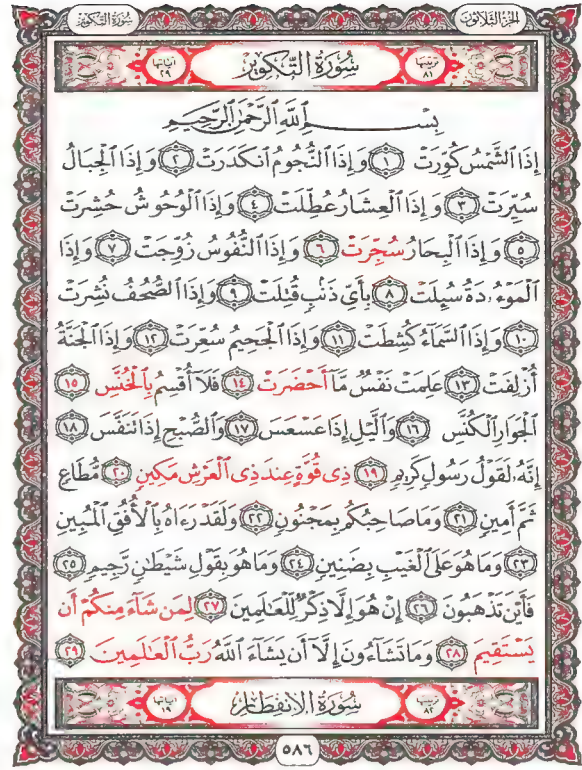 الجزء الثلاثون سورة التكوير
ترتيبها ٨١ سُورَةُ التَّكْوِيرِ آياتها ٢٩
بِسْمِ ٱللَّهِ ٱلرَّحْمَٰنِ ٱلرَّحِيمِ
إِذَا ٱلشَّمْسُ كُوِّرَتْ ١ وَإِذَا ٱلنُّجُومُ ٱنكَدَرَتْ ٢ وَإِذَا ٱلْجِبَالُ
سُيِّرَتْ ٣ وَإِذَا ٱلْعِشَارُ عُطِّلَتْ ٤ وَإِذَا ٱلْوُحُوشُ حُشِرَتْ
٥ وَإِذَا ٱلْبِحَارُ سُجِّرَتْ ٦ وَإِذَا ٱلنُّفُوسُ زُوِّجَتْ ٧ وَإِذَا
ٱلْمَوْءُۥدَةُ سُئِلَتْ ٨ بِأَىِّ ذَنۢبٍ قُتِلَتْ ٩ وَإِذَا ٱلصُّحُفُ نُشِرَتْ
١٠ وَإِذَا ٱلسَّمَآءُ كُشِطَتْ ١١ وَإِذَا ٱلْجَحِيمُ سُعِّرَتْ ١٢ وَإِذَا ٱلْجَنَّةُ
أُزْلِفَتْ ١٣ عَلِمَتْ نَفْسٌ مَّآ أَحْضَرَتْ ١٤ فَلَآ أُقْسِمُ بِٱلْخُنَّسِ ١٥
ٱلْجَوَارِ ٱلْكُنَّسِ ١٦ وَٱلَّيْلِ إِذَا عَسْعَسَ ١٧ وَٱلصُّبْحِ إِذَا تَنَفَّسَ ١٨
إِنَّهُۥ لَقَوْلُ رَسُولٍ كَرِيمٍ ١٩ ذِى قُوَّةٍ عِندَ ذِى ٱلْعَرْشِ مَكِينٍ ٢٠ مُّطَاعٍ
ثَمَّ أَمِينٍ ٢١ وَمَا صَاحِبُكُم بِمَجْنُونٍ ٢٢ وَلَقَدْ رَءَاهُ بِٱلْأُفُقِ ٱلْمُبِينِ
٢٣ وَمَا هُوَ عَلَى ٱلْغَيْبِ بِضَنِينٍ ٢٤ وَمَا هُوَ بِقَوْلِ شَيْطَٰنٍ رَّجِيمٍ ٢٥
فَأَيْنَ تَذْهَبُونَ ٢٦ إِنْ هُوَ إِلَّا ذِكْرٌ لِّلْعَٰلَمِينَ ٢٧ لِمَن شَآءَ مِنكُمْ أَن
يَسْتَقِيمَ ٢٨ وَمَا تَشَآءُونَ إِلَّآ أَن يَشَآءَ ٱللَّهُ رَبُّ ٱلْعَٰلَمِينَ ٢٩
ترتيبها ٨٢ سُورَةُ الانفِطَارِ آياتها
٥٨٦